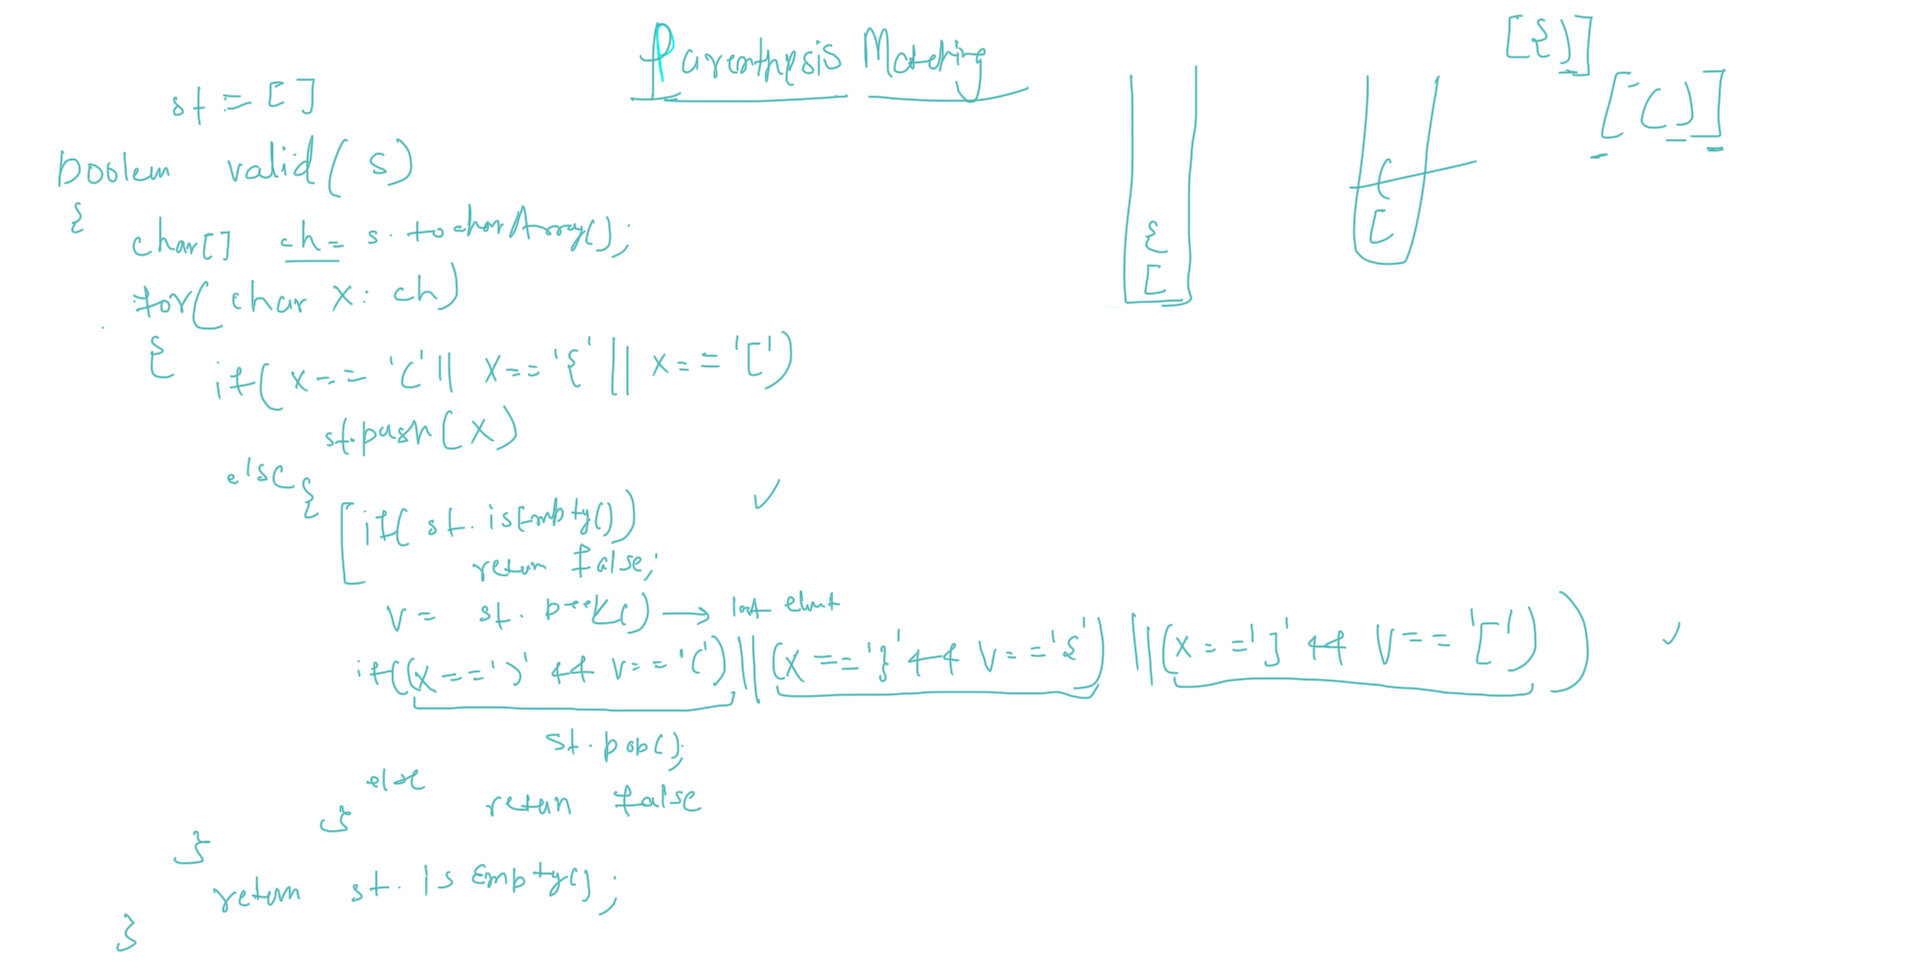 Parenthysis Matching
st = []
boolem valid(s)
{
char[] ch = s.tocharArray();
for(char x: ch)
{
if(x == '(' || x == '{' || x == '[')
st.push(x)
else{
if(st.isEmpty())
return false;
v = st.peek() →
if((x == ')' && v == '(') || (x == '}' && v == '{') || (x == ']' && v == '['))
st.pop();
else
return false
}
}
return st.isEmpty();
}
{
[
(
[
[{)]
[()]